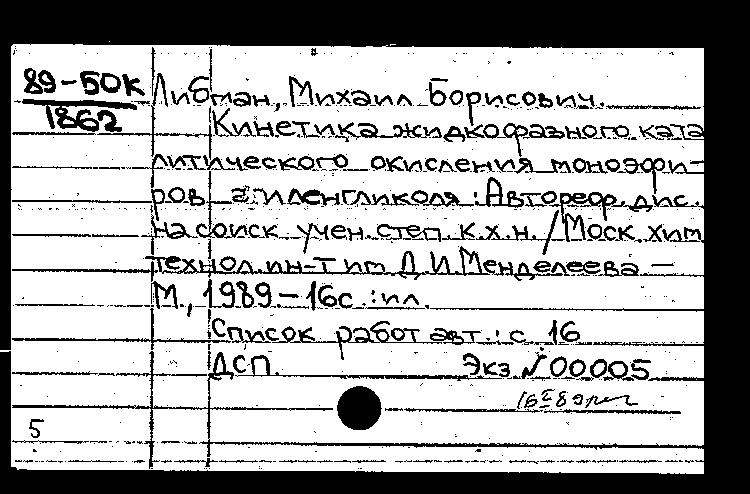 89-БОК
1862
Либман, Михаил Борисович.
Кинетика жидкофазного ката
литического окисления моноэфи-
ров этиленгликоля : Автореф. дис.
на соиск. учен. степ. к.х.н. / Моск. хим
технол. ин-т им Д. И. Менделеева. —
М., 1989. - 16с. : ил.
Список работ авт. : с. 16
ДСП. Экз. № 00005
5